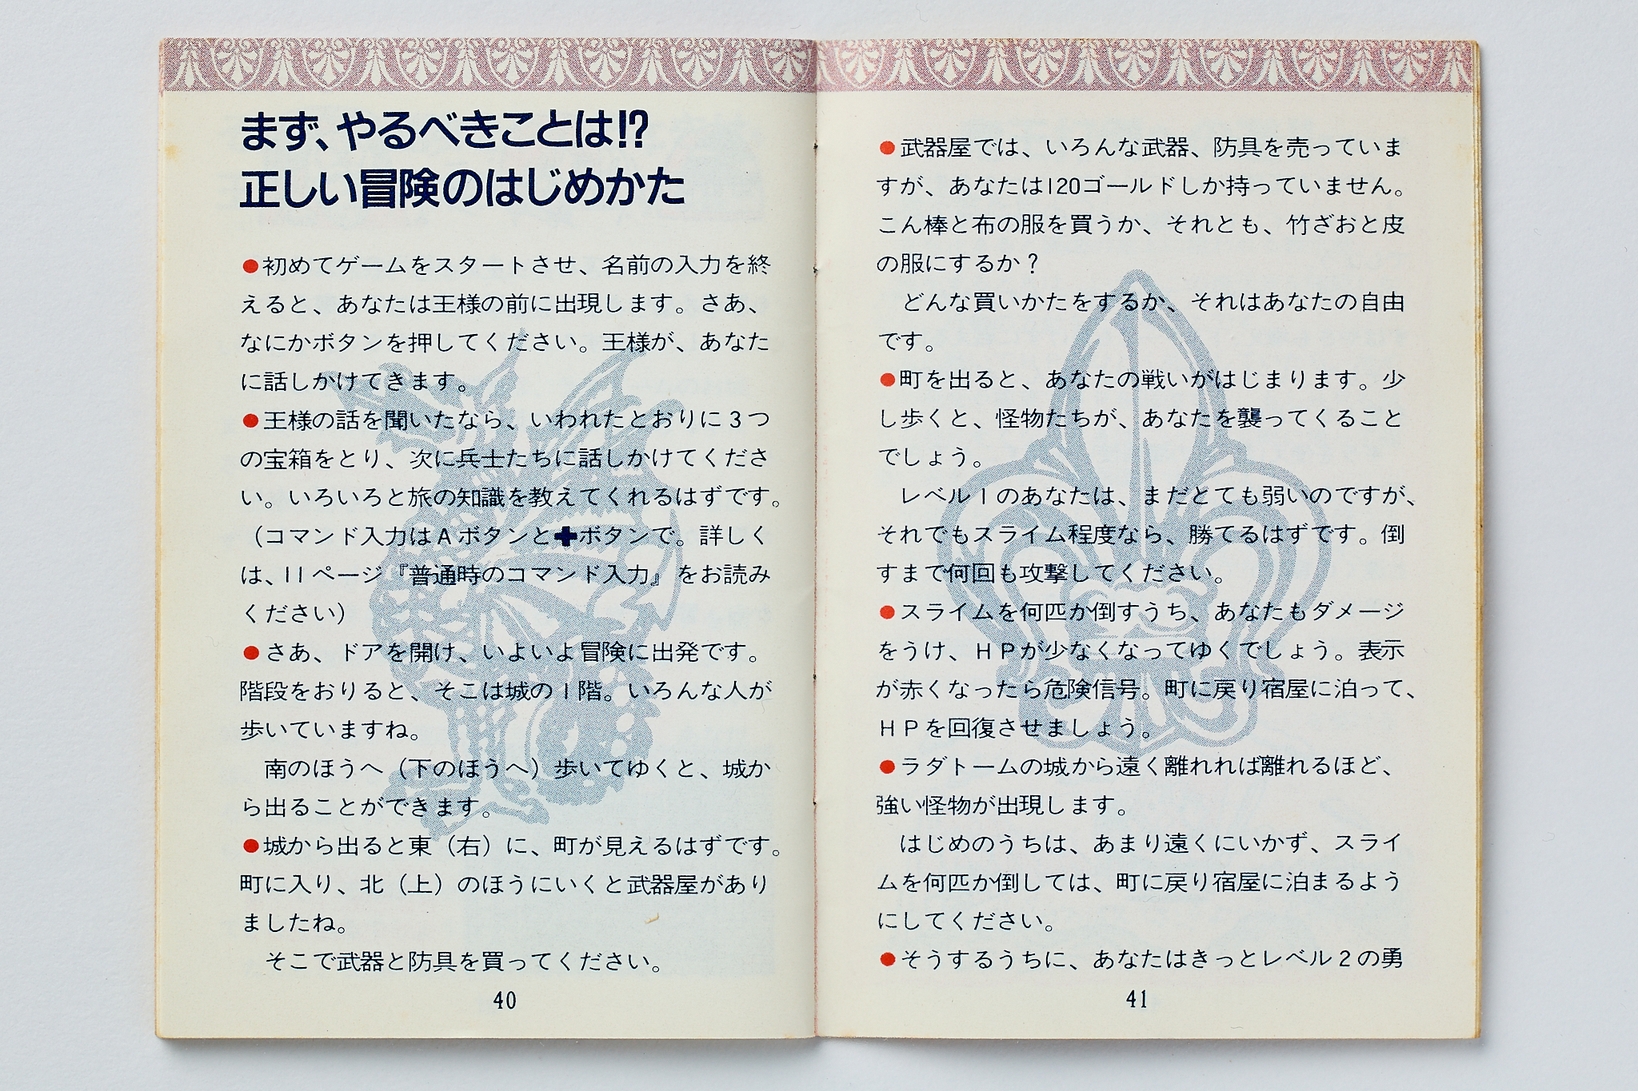 まず、やるべきことは!?
正しい冒険のはじめかた
●初めてゲームをスタートさせ、名前の入力を終
えると、あなたは王様の前に出現します。さあ、
なにかボタンを押してください。王様が、あなた
に話しかけてきます。
●王様の話を聞いたなら、いわれたとおりに3つ
の宝箱をとり、次に兵士たちに話しかけてくださ
い。いろいろと旅の知識を教えてくれるはずです。
（コマンド入力はAボタンと✚ボタンで。詳しく
は、11ページ『普通時のコマンド入力』をお読み
ください）
●さあ、ドアを開け、いよいよ冒険に出発です。
階段をおりると、そこは城の1階。いろんな人が
歩いていますね。
　南のほうへ（下のほうへ）歩いてゆくと、城か
ら出ることができます。
●城から出ると東（右）に、町が見えるはずです。
町に入り、北（上）のほうにいくと武器屋があり
ましたね。
　そこで武器と防具を買ってください。
40
●武器屋では、いろんな武器、防具を売っていま
すが、あなたは120ゴールドしか持っていません。
こん棒と布の服を買うか、それとも、竹ざおと皮
の服にするか？
　どんな買いかたをするか、それはあなたの自由
です。
●町を出ると、あなたの戦いがはじまります。少
し歩くと、怪物たちが、あなたを襲ってくること
でしょう。
　レベル1のあなたは、まだとても弱いのですが、
それでもスライム程度なら、勝てるはずです。倒
すまで何回も攻撃してください。
●スライムを何匹か倒すうち、あなたもダメージ
をうけ、HPが少なくなってゆくでしょう。表示
が赤くなったら危険信号。町に戻り宿屋に泊って、
HPを回復させましょう。
●ラダトームの城から遠く離れれば離れるほど、
強い怪物が出現します。
　はじめのうちは、あまり遠くにいかず、スライ
ムを何匹か倒しては、町に戻り宿屋に泊まるよう
にしてください。
●そうするうちに、あなたはきっとレベル2の勇
41